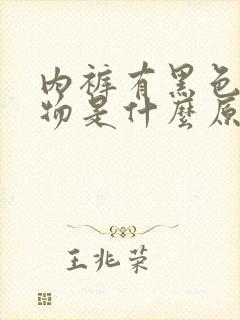 內裤有黑色
物是什麼原
王兆荣